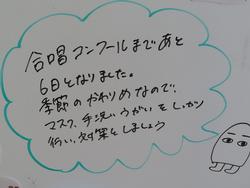 合唱コンクールまであと
6日となりました。
季節のかわりめなので、
マスク、手洗いうがいをしっかり
行い、対策をしましょう